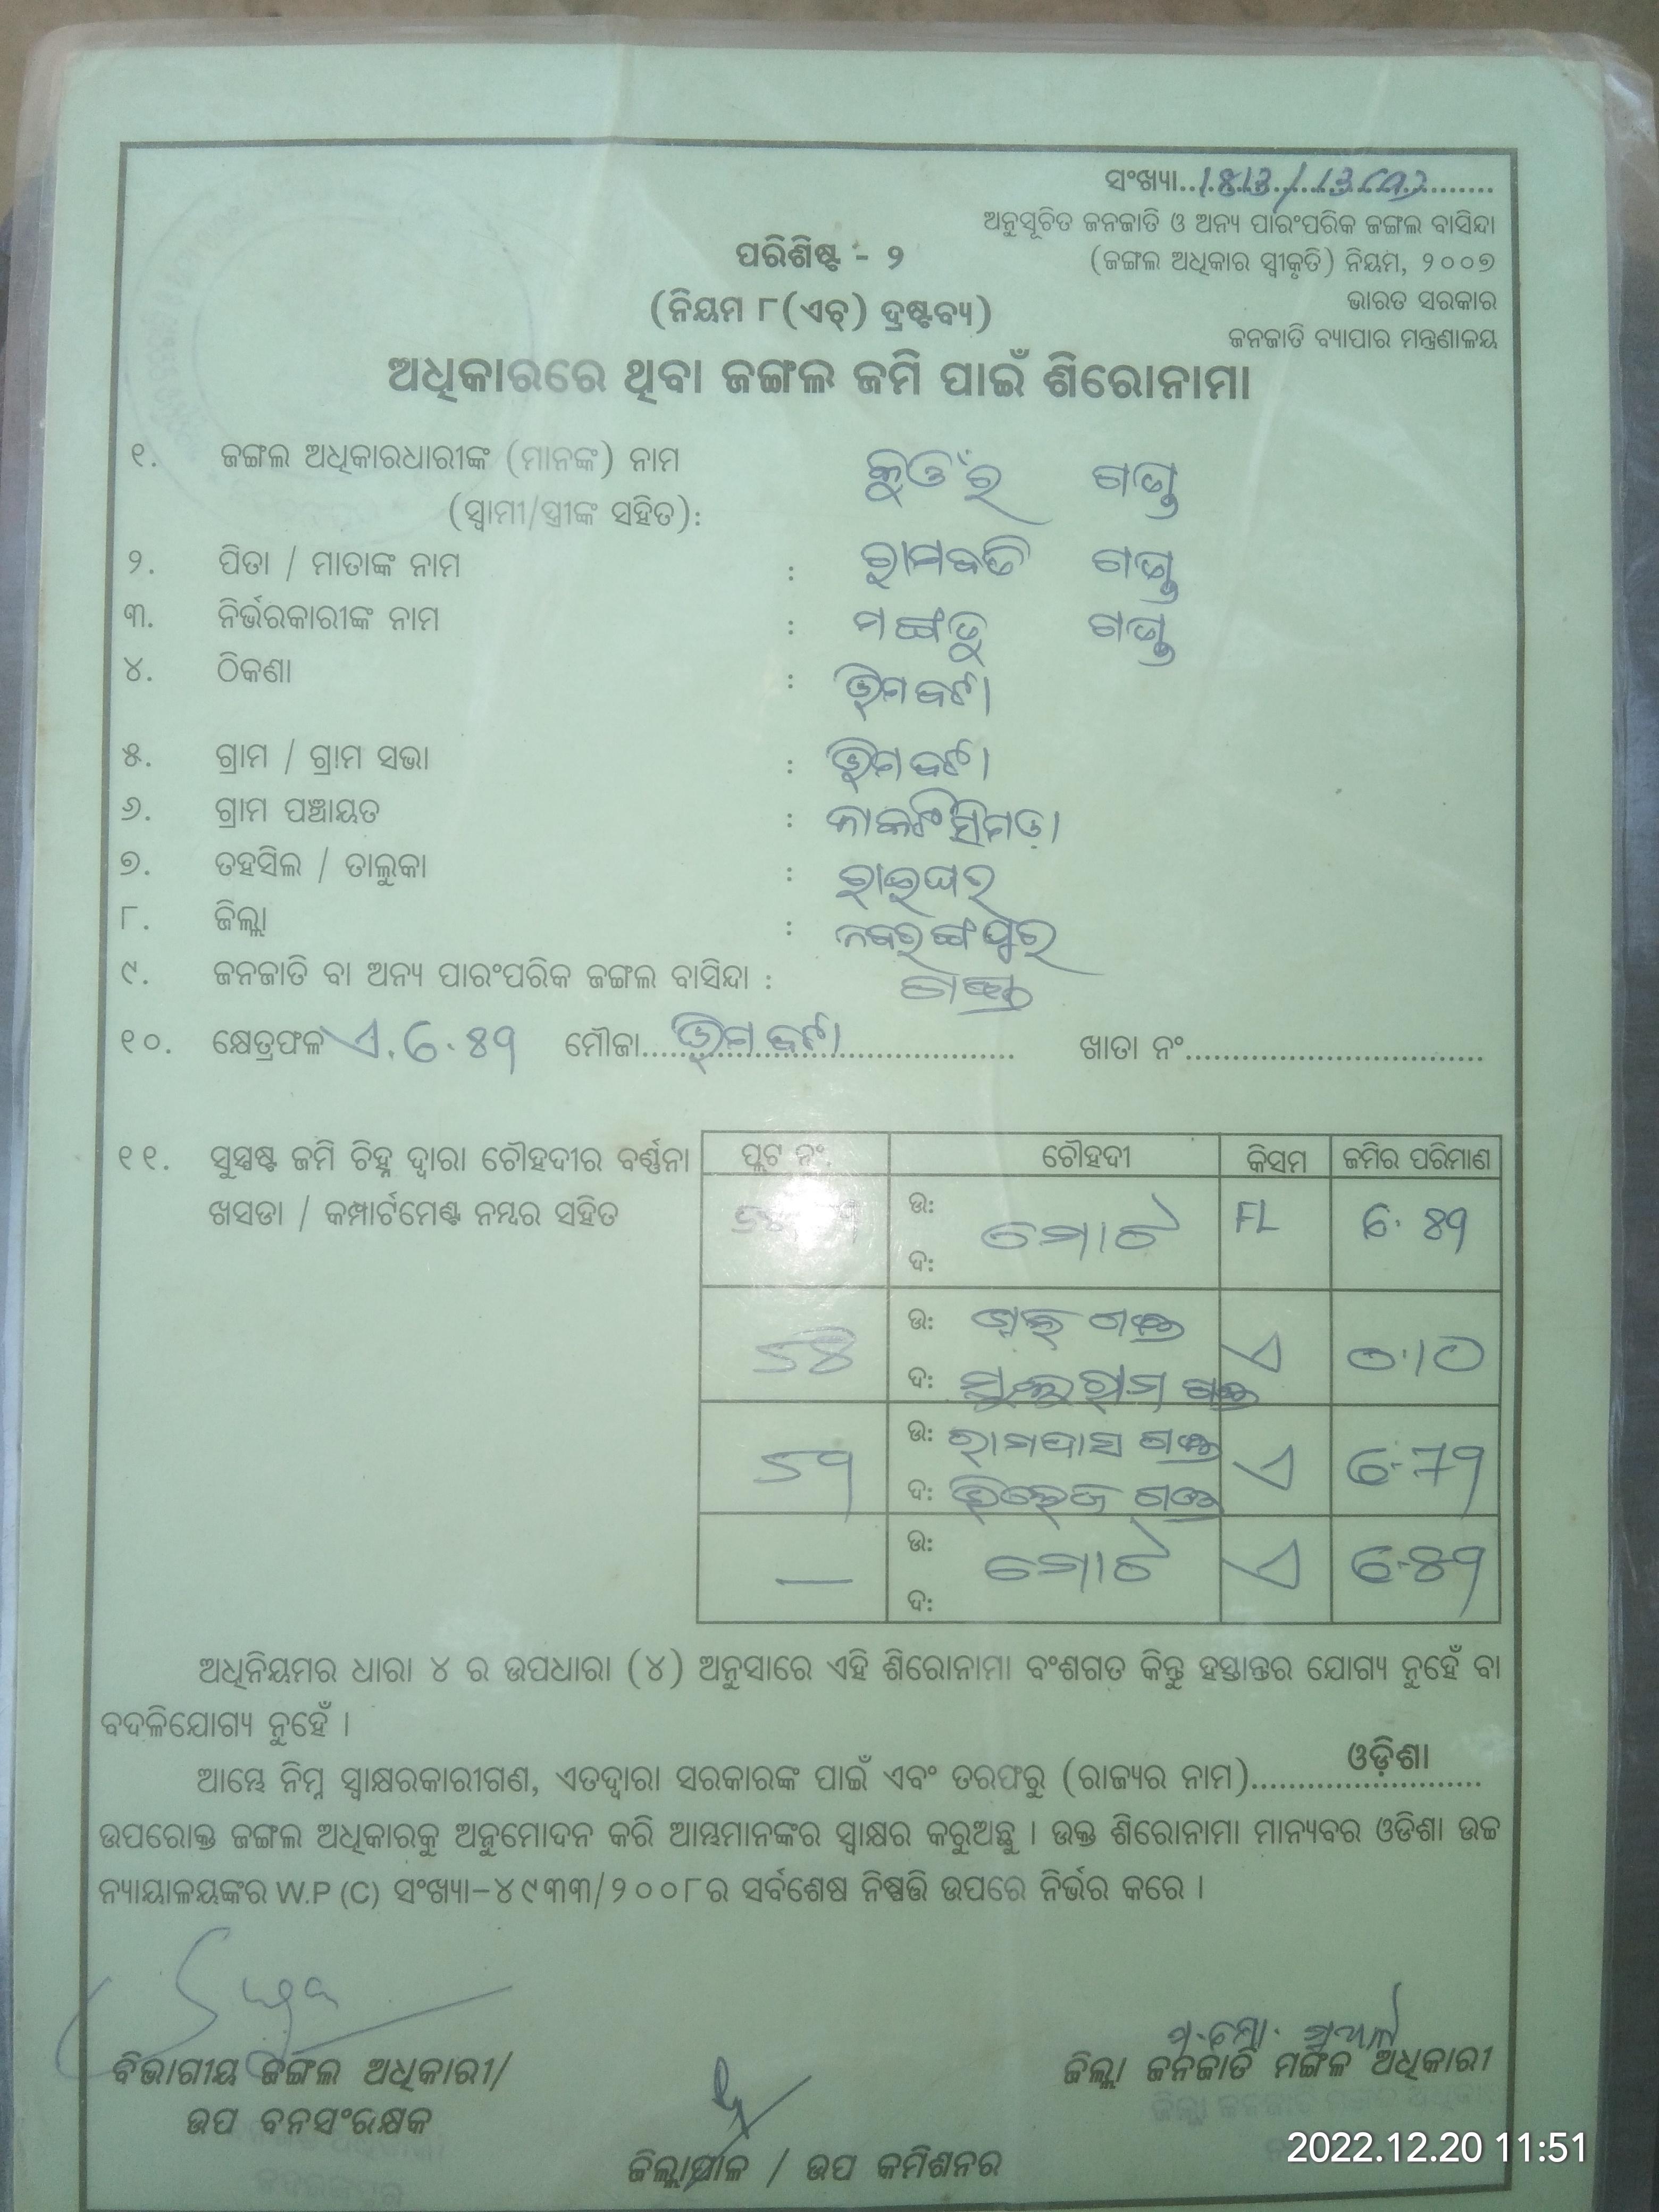 ସଂଖ୍ୟା
ଅନୁସୂଚିତ ଜନଜାତି ଓ ଅନ୍ୟ ପାରଂପରିକ ଜଙ୍ଗଲ ବାସିନ୍ଦା
(ଜଙ୍ଗଲ ଅଧିକାର ସ୍ୱୀକୃତି) ନିୟମ, ୨୦୦୭
ଭାରତ ସରକାର
ଜନଜାତି ବ୍ୟାପାର ମନ୍ତ୍ରଣାଳୟ
ପରିଶିଷ୍ଟ - ୨
(ନିୟମ ୮(ଏଚ୍) ଦ୍ରଷ୍ଟବ୍ୟ)
ଅଧିକାରରେ ଥିବା ଜଙ୍ଗଲ ଜମି ପାଇଁ ଶିରୋନାମା
୧. ଜଙ୍ଗଲ ଅଧିକାରଧାରୀଙ୍କ (ମାନଙ୍କ) ନାମ ଗଣ୍ଡ
(ସ୍ୱାମୀ/ସ୍ତ୍ରୀଙ୍କ ସହିତ):
୨. ପିତା / ମାତାଙ୍କ ନାମ : ରାମବତି ଗଣ୍ଡ
୩. ନିର୍ଭରକାରୀଙ୍କ ନାମ : ମଙ୍ଗତୁ ଗଣ୍ଡ
୪. ଠିକଣା :
୫. ଗ୍ରାମ / ଗ୍ରାମ ସଭା :
୬. ଗ୍ରାମ ପଞ୍ଚାୟତ :
୭. ତହସିଲ / ତାଲୁକା : ରାଇଘର
୮. ଜିଲ୍ଲା : ନବରଙ୍ଗପୁର
୯. ଜନଜାତି ବା ଅନ୍ୟ ପାରଂପରିକ ଜଙ୍ଗଲ ବାସିନ୍ଦା :
୧୦. କ୍ଷେତ୍ରଫଳ ମୌଜା ଖାତା ନଂ
୧୧. ସୁସ୍ପଷ୍ଟ ଜମି ଚିହ୍ନ ଦ୍ୱାରା ଚୌହଦୀର ବର୍ଣ୍ଣନା
ଖସଡା / କମ୍ପାର୍ଟମେଣ୍ଟ ନମ୍ବର ସହିତ
ପ୍ଲଟ ନଂ. ଚୌହଦୀ କିସମ ଜମିର ପରିମାଣ
ଉ: ଦ: ମୋଟ FL
ଉ: ଗଣ୍ଡ ଏ ୦.୧୦
ଦ: ଗଣ୍ଡ
ଉ: ରାମଦାସ ଗଣ୍ଡ ଏ
ଦ: ଗଣ୍ଡ
— ଉ: ଦ: ମୋଟ ଏ
ଅଧିନିୟମର ଧାରା ୪ ର ଉପଧାରା (୪) ଅନୁସାରେ ଏହି ଶିରୋନାମା ବଂଶଗତ କିନ୍ତୁ ହସ୍ତାନ୍ତର ଯୋଗ୍ୟ ନୁହେଁ ବା
ବଦଳିଯୋଗ୍ୟ ନୁହେଁ ।
ଆମ୍ଭେ ନିମ୍ନ ସ୍ୱାକ୍ଷରକାରୀଗଣ, ଏତଦ୍ୱାରା ସରକାରଙ୍କ ପାଇଁ ଏବଂ ତରଫରୁ (ରାଜ୍ୟର ନାମ) ଓଡ଼ିଶା
ଉପରୋକ୍ତ ଜଙ୍ଗଲ ଅଧିକାରକୁ ଅନୁମୋଦନ କରି ଆମ୍ଭମାନଙ୍କର ସ୍ୱାକ୍ଷର କରୁଅଛୁ । ଉକ୍ତ ଶିରୋନାମା ମାନ୍ୟବର ଓଡିଶା ଉଚ୍ଚ
ନ୍ୟାୟାଳୟଙ୍କର W.P (C) ସଂଖ୍ୟା-୪୯୩୩/୨୦୦୮ର ସର୍ବଶେଷ ନିଷ୍ପତ୍ତି ଉପରେ ନିର୍ଭର କରେ ।
ବିଭାଗୀୟ ଜଙ୍ଗଲ ଅଧିକାରୀ/
ଉପ ବନସଂରକ୍ଷକ
ଜିଲ୍ଲା ଜନଜାତି ମଙ୍ଗଳ ଅଧିକାରୀ
ଜିଲ୍ଲାପାଳ / ଉପ କମିଶନର
2022.12.20 11:51